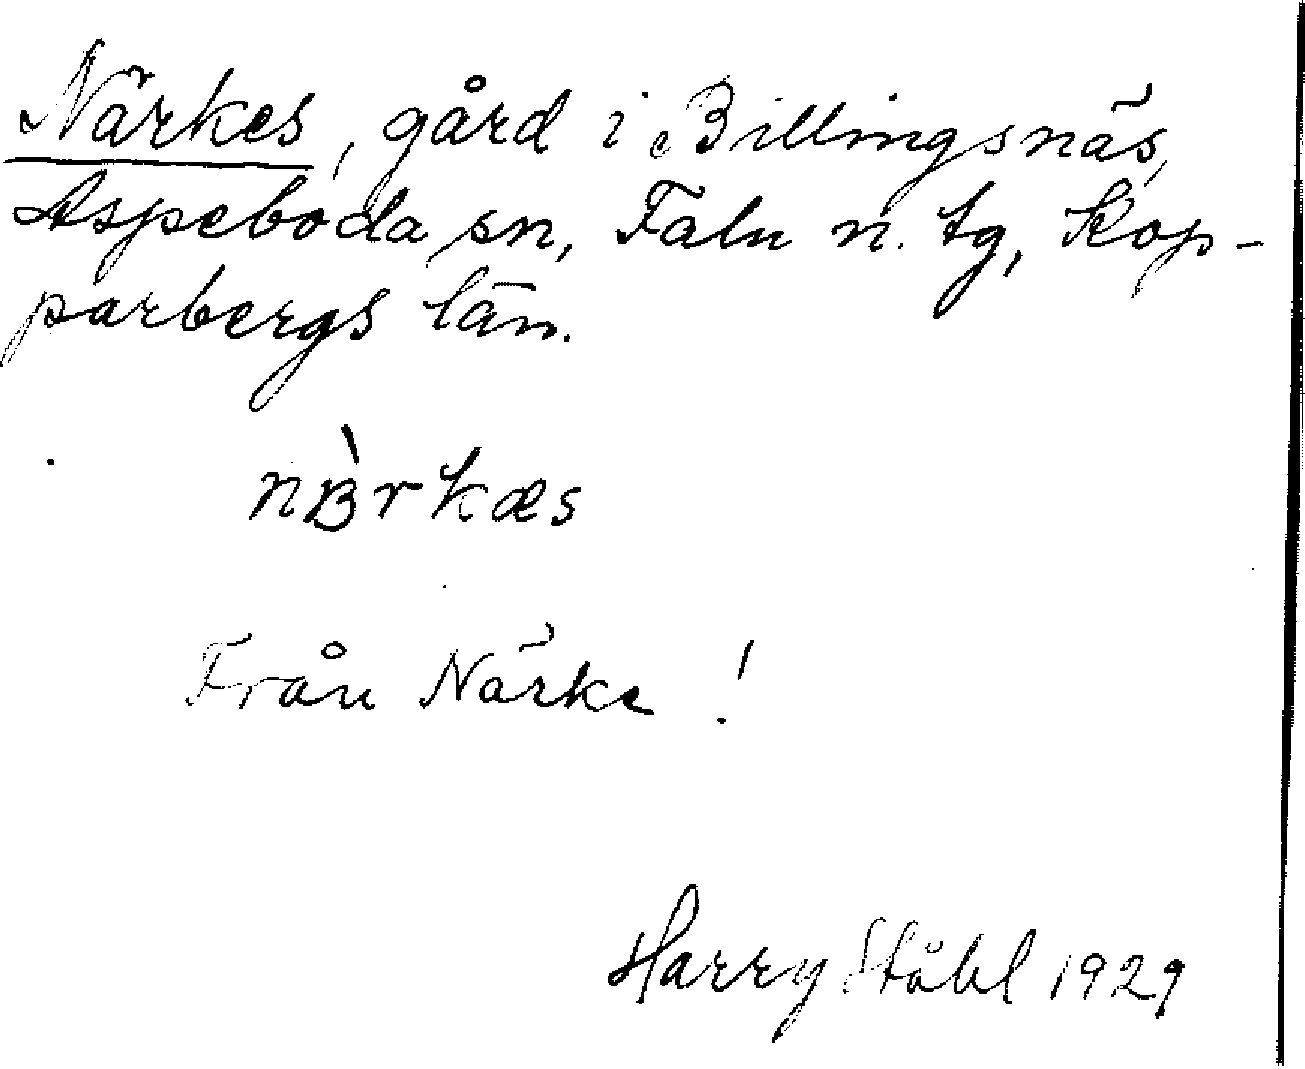 Närkes, gård i Billingsnäs,
Aspeboda sn, Falu n. tg, Kop-
parbergs län.
nʙ̀rkæs
Från Närke!
Harry Ståhl 1929